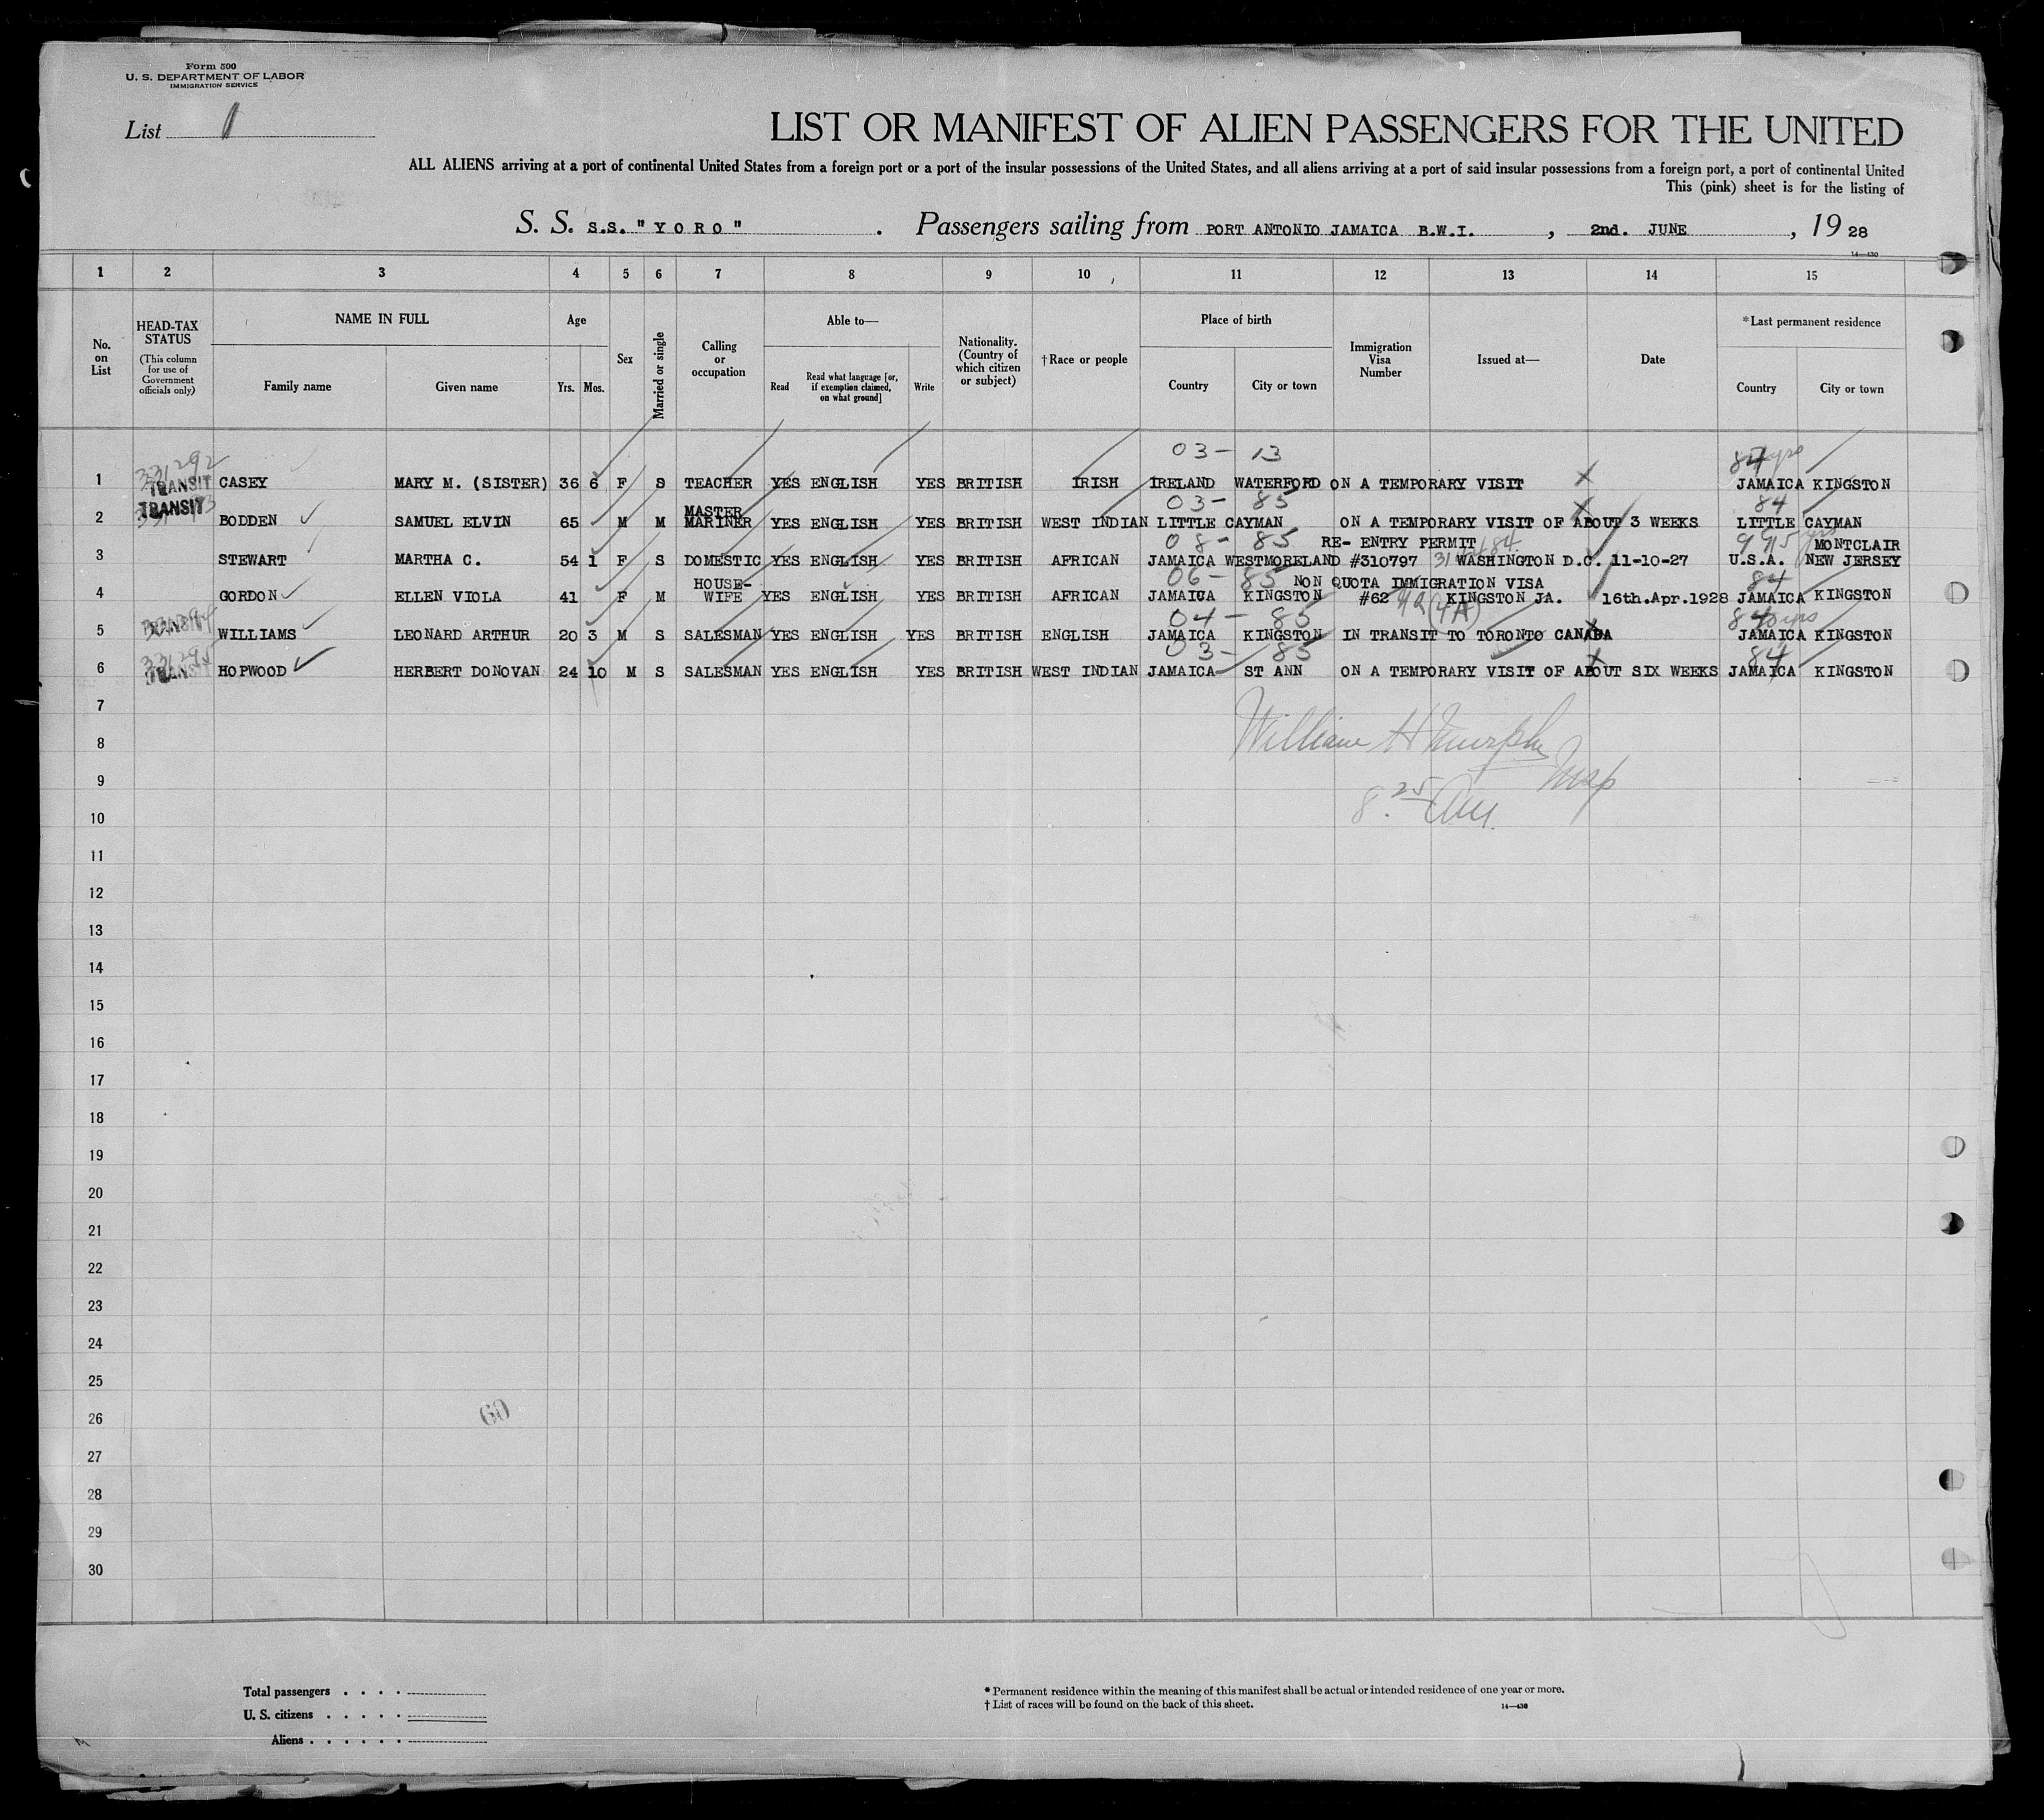 Form 500
U. S. DEPARTMENT OF LABOR
IMMIGRATION SERVICE
List
LIST OR MANIFEST OF ALIEN PASSENGERS FOR THE UNITED
ALL ALIENS arriving at a port of continental United States from a foreign port or a port of the insular possessions of the United States, and all aliens arriving at a port of said insular possessions from a foreign port, a port of continental United
This (pink) sheet is for the listing of
S. S. S.S. "YORO" . Passengers sailing from PORT ANTONIO JAMAICA B.W.I. , 2nd. JUNE , 19 28
14—430
1 2 3 4 5 6 7 8 9 10 11 12 13 14 15
No. on List
HEAD-TAX STATUS
(This column for use of Government officials only)
NAME IN FULL
Family name
Given name
Age
Yrs. Mos.
Sex
Married or single
Calling or occupation
Able to—
Read
Read what language [or, if exemption claimed, on what ground]
Write
Nationality. (Country of which citizen or subject)
†Race or people
Place of birth
Country
City or town
Immigration Visa Number
Issued at—
Date
*Last permanent residence
Country
City or town
331292 03- 13
1 TRANSIT CASEY MARY M. (SISTER) 36 6 F S TEACHER YES ENGLISH YES BRITISH IRISH IRELAND WATERFORD ON A TEMPORARY VISIT JAMAICA KINGSTON
TRANSIT MASTER 03- 85 84
2 BODDEN SAMUEL ELVIN 65 M M MARINER YES ENGLISH YES BRITISH WEST INDIAN LITTLE CAYMAN ON A TEMPORARY VISIT OF ABOUT 3 WEEKS LITTLE CAYMAN
08- 85 RE- ENTRY PERMIT MONTCLAIR
3 STEWART MARTHA C. 54 1 F S DOMESTIC YES ENGLISH YES BRITISH AFRICAN JAMAICA WESTMORELAND #310797 WASHINGTON D.C. 11-10-27 U.S.A. NEW JERSEY
HOUSE- 06- 85 NON QUOTA IMMIGRATION VISA 84
4 GORDON ELLEN VIOLA 41 F M WIFE YES ENGLISH YES BRITISH AFRICAN JAMAICA KINGSTON #62 KINGSTON JA. 16th.Apr.1928 JAMAICA KINGSTON
04- 85 (4A)
5 WILLIAMS LEONARD ARTHUR 20 3 M S SALESMAN YES ENGLISH YES BRITISH ENGLISH JAMAICA KINGSTON IN TRANSIT TO TORONTO CANADA JAMAICA KINGSTON
331295 03- 85 84
6 TRANSIT HOPWOOD HERBERT DONOVAN 24 10 M S SALESMAN YES ENGLISH YES BRITISH WEST INDIAN JAMAICA ST ANN ON A TEMPORARY VISIT OF ABOUT SIX WEEKS JAMAICA KINGSTON
7
William H Murphy
8
Insp
9
8.25 AM.
10
11
12
13
14
15
16
17
18
19
20
21
22
23
24
25
26
60
27
28
29
30
Total passengers . . . .
U. S. citizens . . . . .
Aliens . . . . . .
* Permanent residence within the meaning of this manifest shall be actual or intended residence of one year or more.
† List of races will be found on the back of this sheet.
14—430